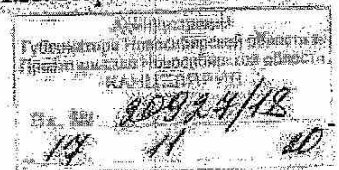 Администрация
Губернатора Новосибирской области и
Правительства Новосибирской области
КАНЦЕЛЯРИЯ
Вх. №
20927/18
17 11 20